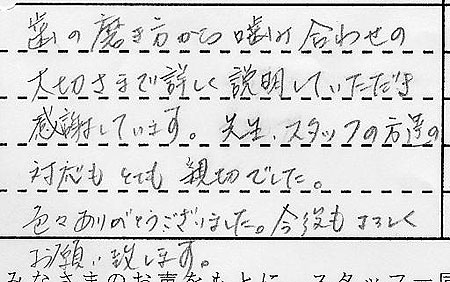 歯の磨き方から噛み合わせの
大切さまで詳しく説明していただき
感謝しています。先生、スタッフの方達の
対応もとても親切でした。
色々ありがとうございました。今後もよろしく
お願い致します。
みなさまのお声をもとに、スタッフ一同